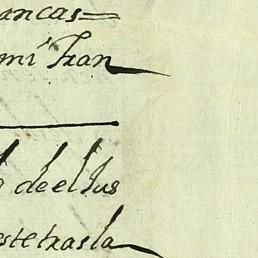 ancas=
mi Fran
deellus
estetrasla